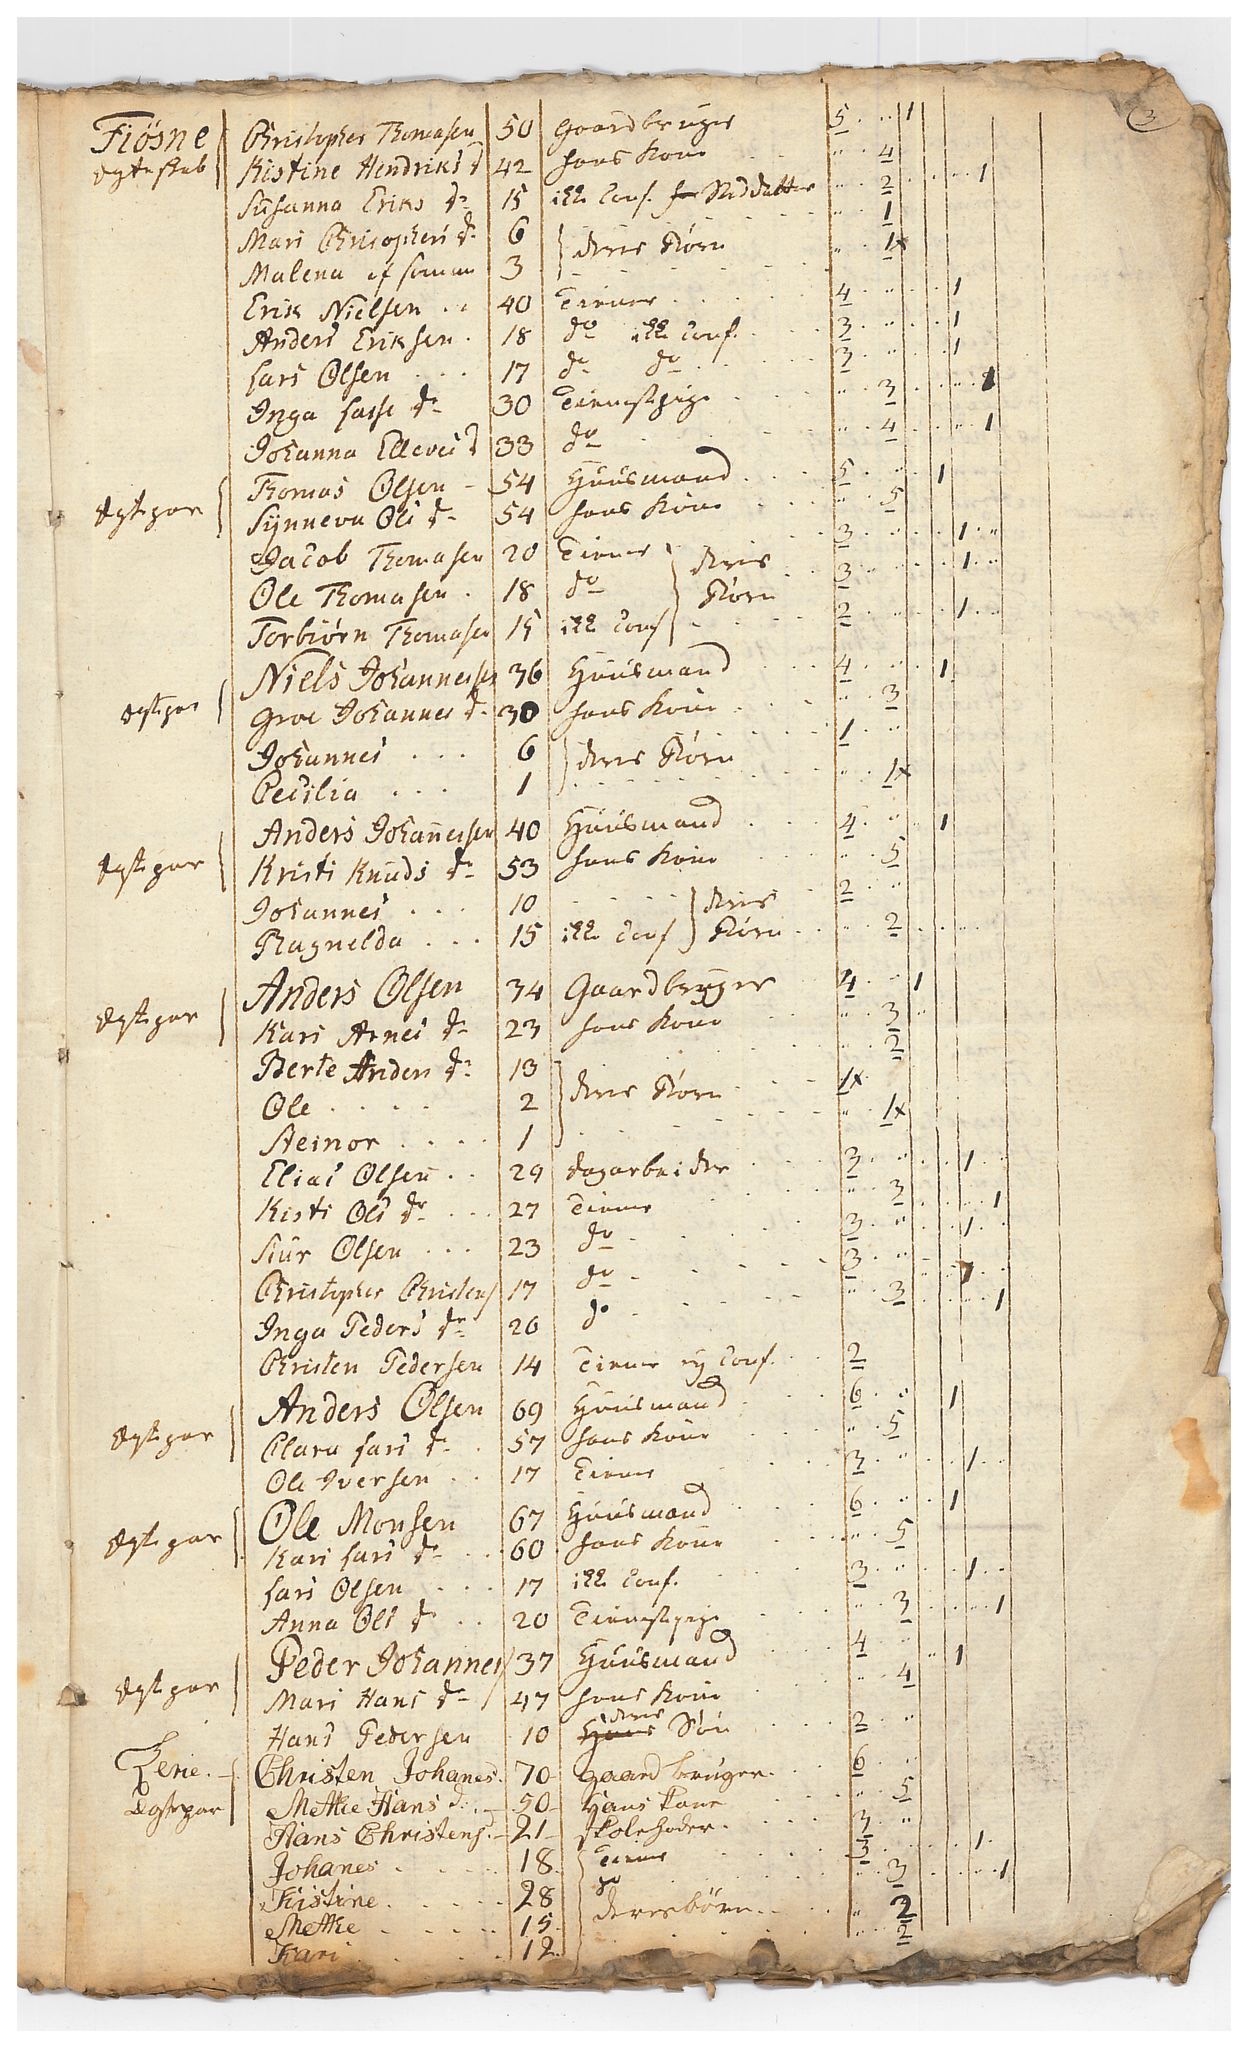 3
Fiösne Christopher Thomasen 50 Gaardbruger 5 .. 1
Egteskab Kistine Hendriks d 42 hans Kone .. 4
Susanna Eriks dr 15 ikke Conf. Steddatter .. 2 1
Mari Christophers dr 6 deres Børn .. 1
Malena af samme 3 .. 1x
Erik Nielsen .. 40 Tiener 4 .. 1
Anders Eriksen . 18 do ikke Conf. 3 .. 1
Lars Olsen ... 17 do do 3 .. 1
Inga Lasse dr 30 Tienestpige .. 3 1
Johanna Ellevs d 33 do .. 4 1
Thomas Olsen - 54 Huusmand 5 .. 1
Egtepar Synneva Ols dr 54 hans Kone .. 5
Jacob Thomasen 20 Tiener deres 3 1 ..
Ole Thomasen . 18 do Børn 3 .. 1 ..
Torbiörn Thomasen 15 ikke Conf 2 .. 1 ..
Niels Johannessen 36 Huusmand 4 .. 1
Egtepar Groe Johannes dr 30 hans Kone .. 3
Johannes ... 6 deres Børn 1 ..
Cecilia ... 1 .. 1x
Anders Johannessen 40 Huusmand 4 .. 1
Egtepar Kristi Knuds dr 53 hans Kone .. 5
Johannes ... 10 deres 2 ..
Ragnilda ... 15 ikke Conf Børn .. 2
Anders Olsen 34 Gaardbruger 4 .. 1
Egtepar Kari Arnes dr 23 hans Kone .. 3 ..
Berte Anders dr 13 .. 2
Ole .... 2 deres Børn 1x
Steinor .... 1 .. 1x
Elias Olsen .. 29 dagarbeider 3 .. 1 ..
Kisti Ols dr ... 27 Tiener .. 3 1
Siur Olsen ... 23 do 3 .. 1 ..
Christopher Christens 17 do 3 .. 1 ..
Inga Peders dr 20 do .. 3 1
Christen Pedersen 14 Tiener ej Conf. 2
Anders Olsen 69 Huusmand 6 .. 1
Egtepar Clara Lars dr . 57 hans Kone .. 5
Ole Iversen .. 17 Tiener 3 .. 1 ..
Ole Monsen 67 Huusmand 6 .. 1
Egtepar Kari Lars dr .. 60 hans Kone .. 5
Lars Olsen ... 17 ikke Conf. 3 .. 1 ..
Anna Ols dr .. 20 Tienestpige .. 3 1
Peder Johannes 37 Huusmand 4 .. .. 1
Egtepar Mari Hans dr 47 hans Kone .. 4
Hans Pedersen 10 deres Søn 2 ..
Christen Johanes. 70 gaardbruger 6 ..
Egtepar Metke Hans d. 50 Hans kone .. 5
Hans Christens. 21 skoleholder. 3 ..
Johanes .... 18 Tiener 3 1
Kistine .... 28 do .. 3 1
Metke .... 15 deres börn .. 2
Kari .... 12 .. 2